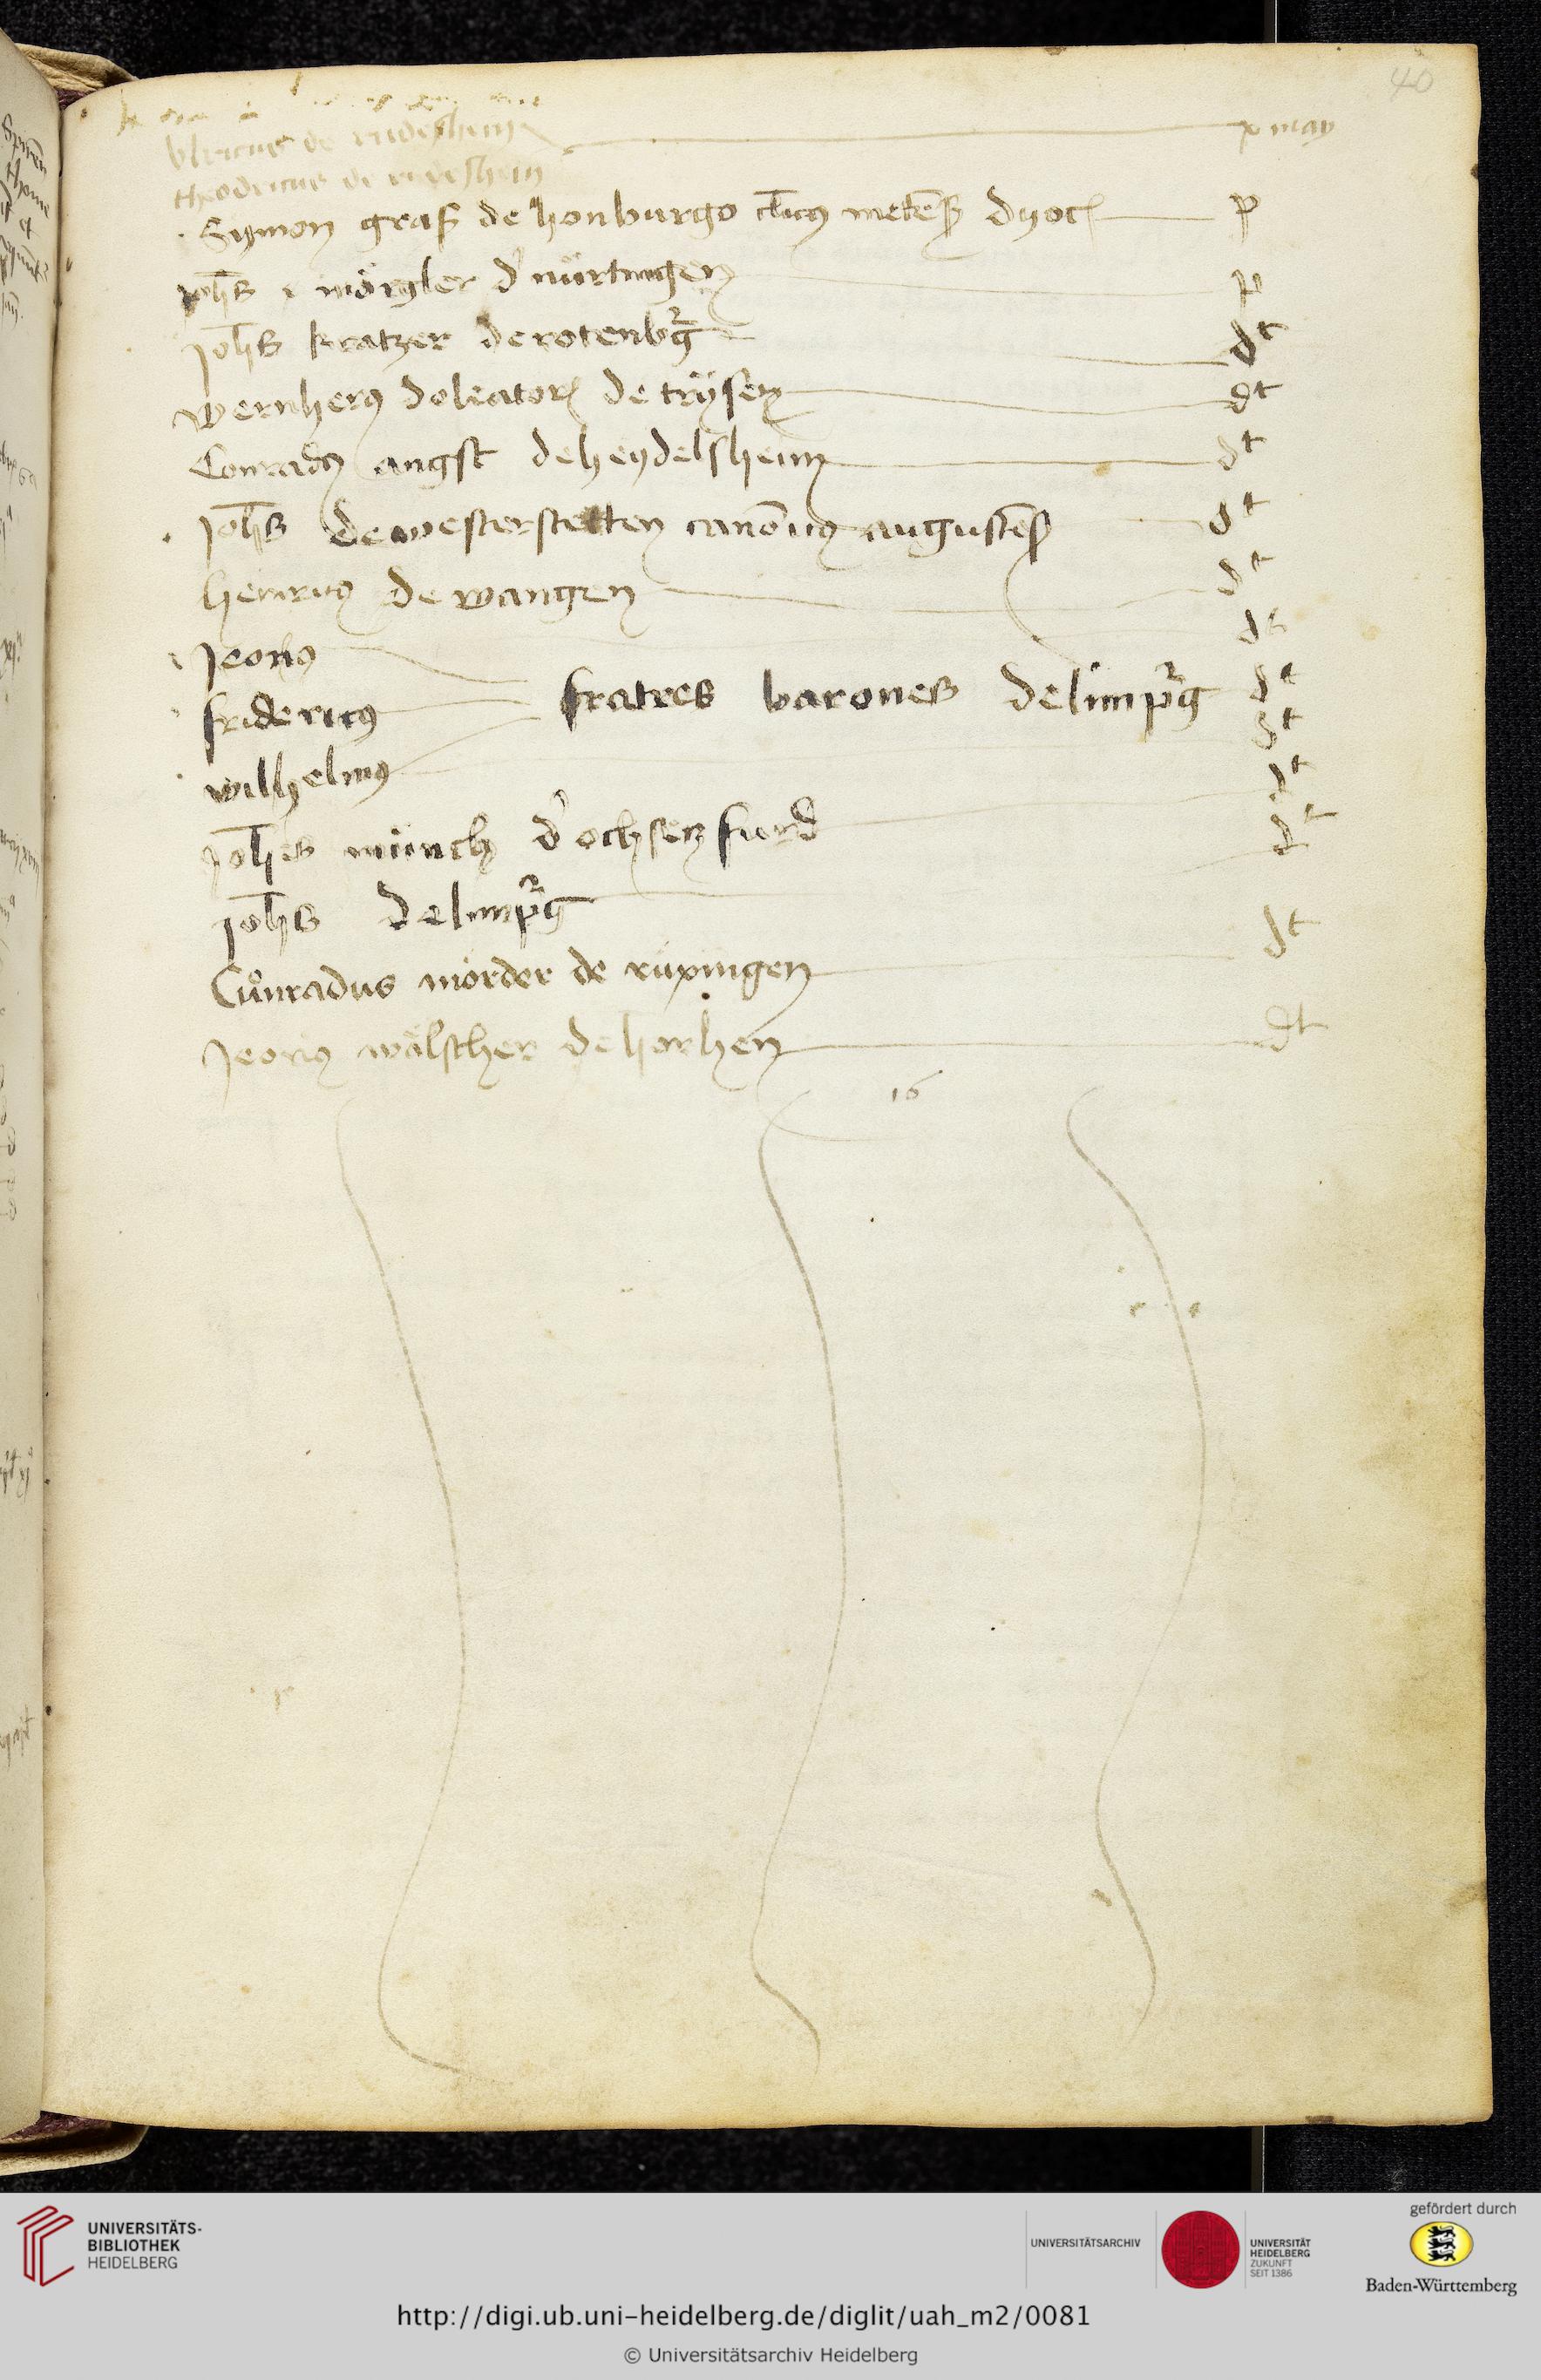 40
ulricus de rudeshem x may
theodricus de rudeshein
Symon graff de honburgo clicus meteñ dyoc p
Johs mörgler d' nürtingen p
Johs kratzer de rotenbg dt
Wernherus doleatoris de trÿsen dt
Conradus angst de heydelshem dt
Johs de westerstetten canonicus augusteñ dt
Heinricus de wangen dt
Jeorius dt
fridericus fratres barones de limpg dt
wilhelmus dt
Johes münch d' ochsenfurd dt
Johs de limpg dt
Cůnradus mörder de rüxingen dt
Jeorius wälscher de horhen dt
16
UNIVERSITÄTS-
BIBLIOTHEK
HEIDELBERG
UNIVERSITÄTSARCHIV
UNIVERSITÄT
HEIDELBERG
ZUKUNFT
SEIT 1386
gefördert durch
Baden-Württemberg
http://digi.ub.uni-heidelberg.de/diglit/uah_m2/0081
© Universitätsarchiv Heidelberg